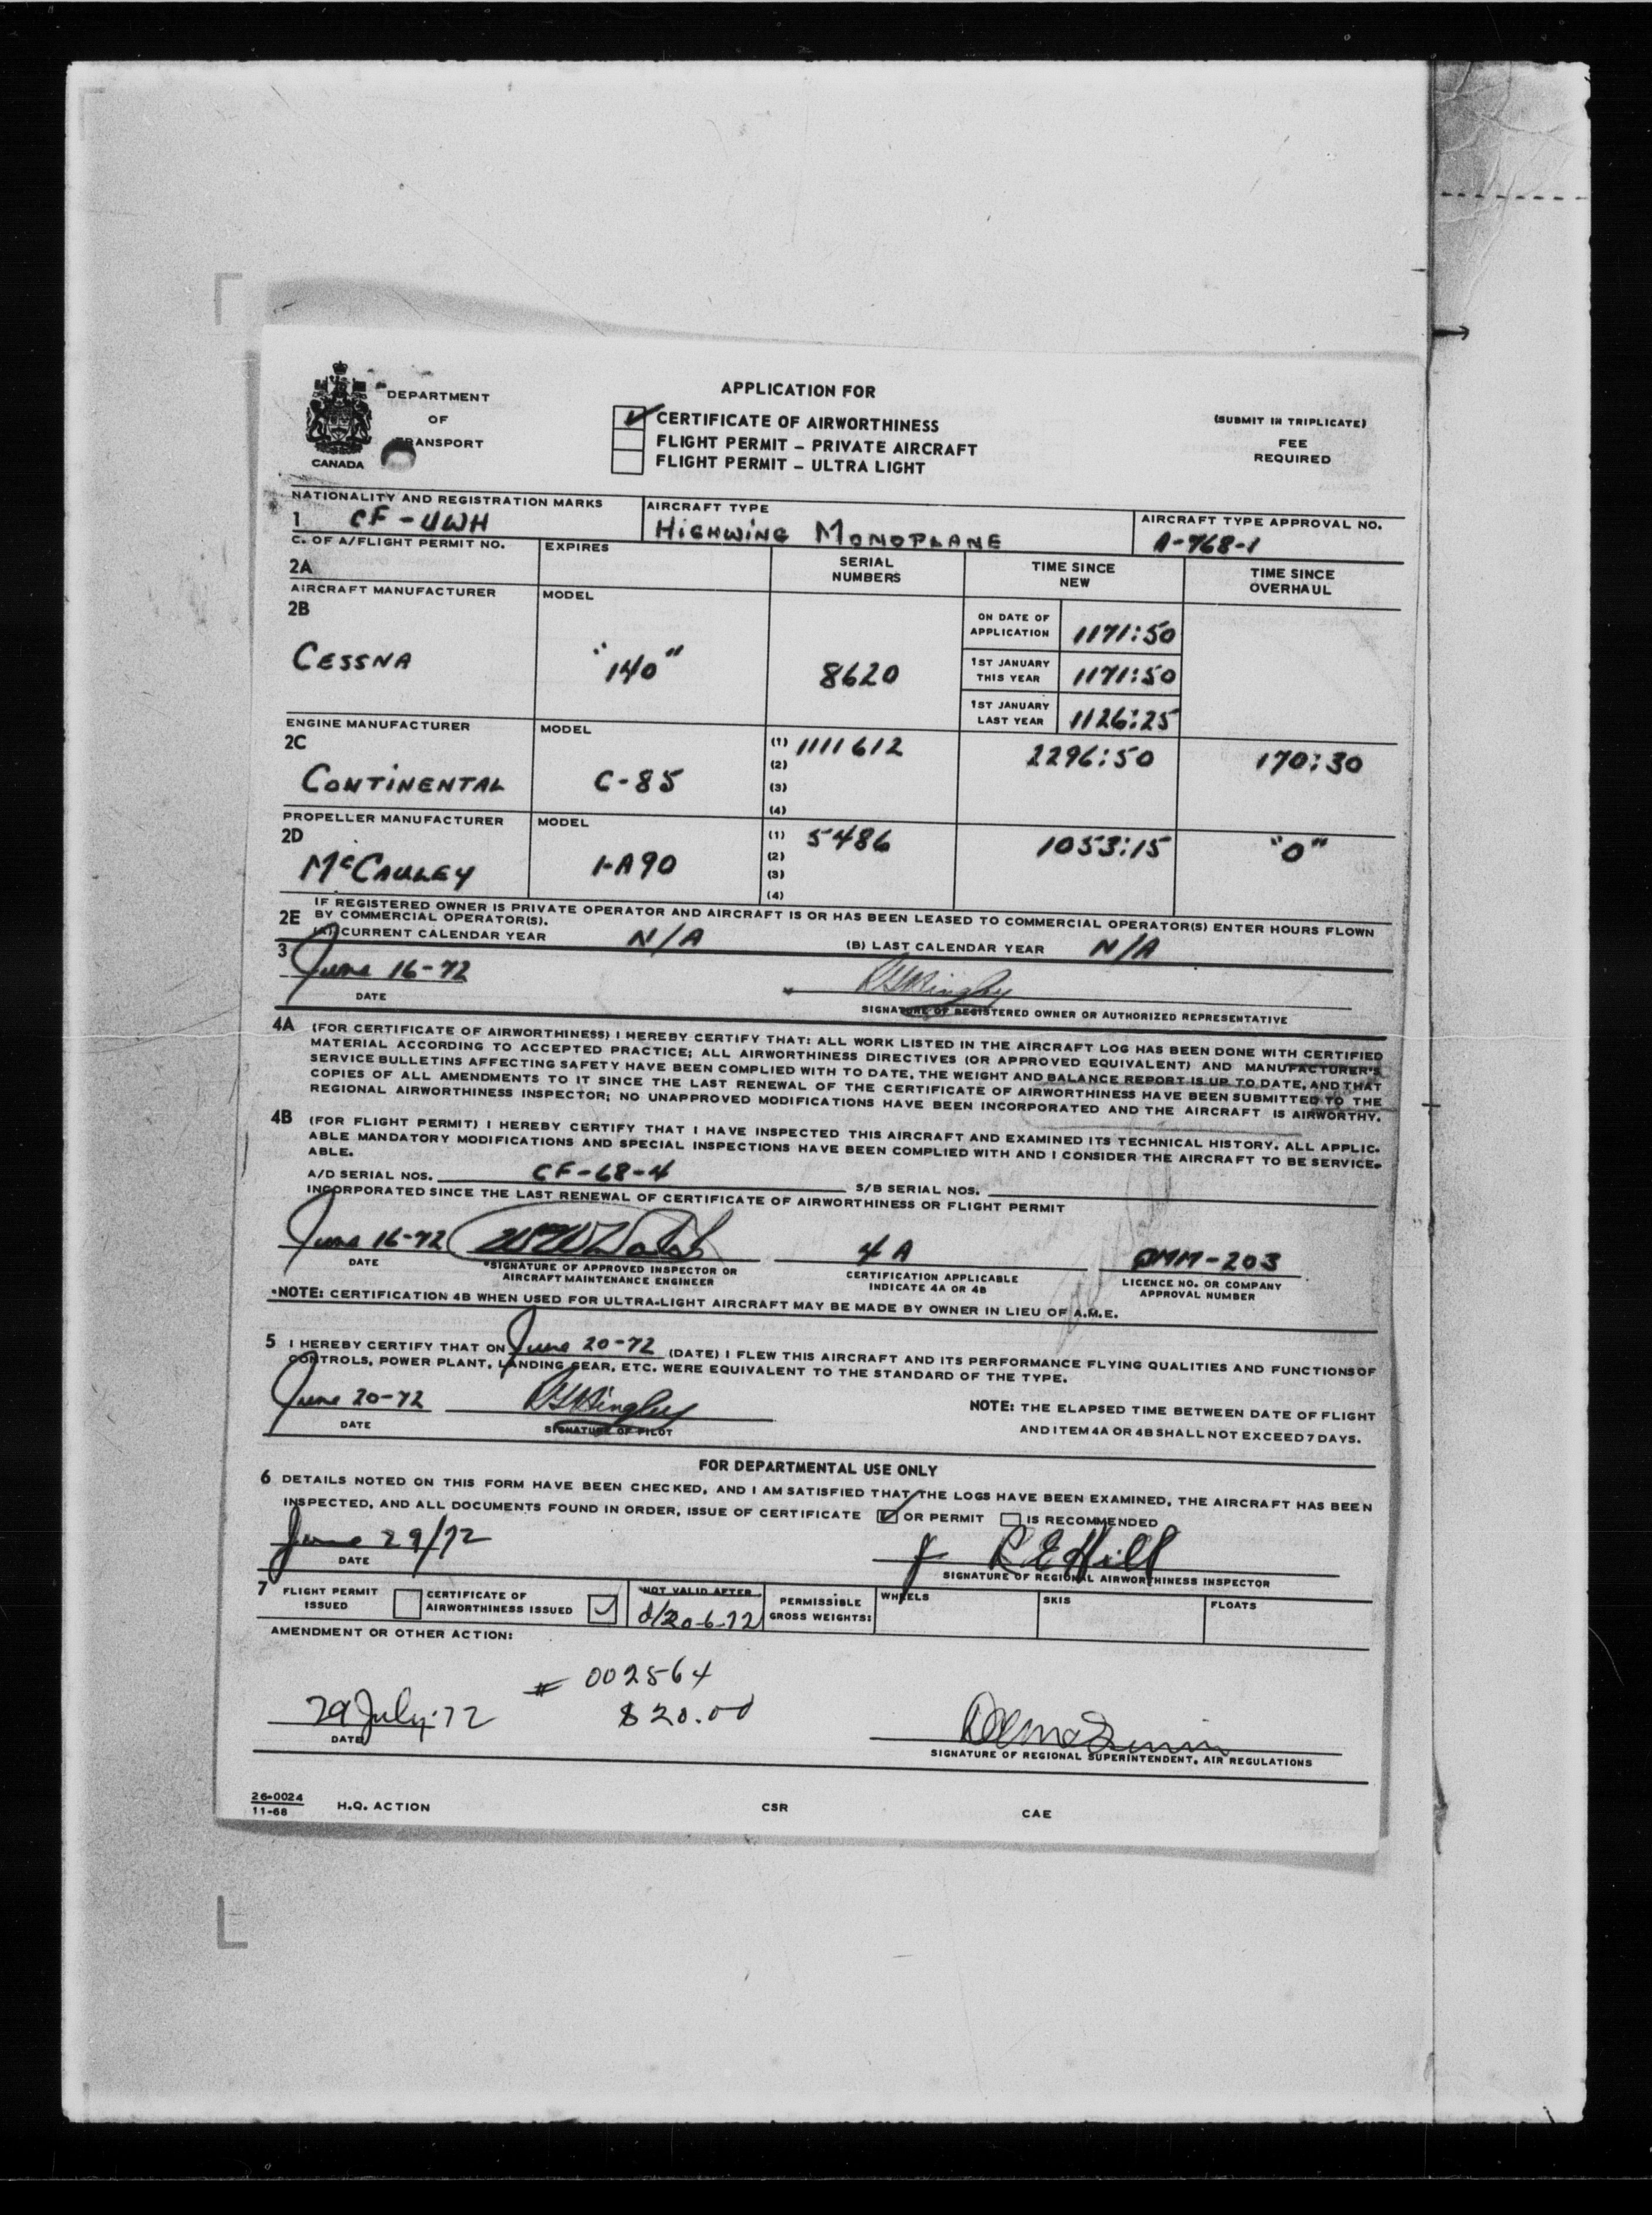 DEPARTMENT
OF
TRANSPORT
CANADA
APPLICATION FOR
CERTIFICATE OF AIRWORTHINESS
FLIGHT PERMIT – PRIVATE AIRCRAFT
FLIGHT PERMIT – ULTRA LIGHT
(SUBMIT IN TRIPLICATE)
FEE
REQUIRED
NATIONALITY AND REGISTRATION MARKS
1 CF-UWH
AIRCRAFT TYPE
HIGHWING MONOPLANE
AIRCRAFT TYPE APPROVAL NO.
A-768-1
C. OF A/FLIGHT PERMIT NO.
2A
EXPIRES
SERIAL
NUMBERS
TIME SINCE
NEW
TIME SINCE
OVERHAUL
AIRCRAFT MANUFACTURER
2B
CESSNA
MODEL
"140"
8620
ON DATE OF
APPLICATION 1171:50
1ST JANUARY
THIS YEAR 1171:50
1ST JANUARY
LAST YEAR 1126:25
ENGINE MANUFACTURER
2C
CONTINENTAL
MODEL
C-85
(1) 1111612
(2)
(3)
(4)
2296:50
170:30
PROPELLER MANUFACTURER
2D
McCAULEY
MODEL
1-A90
(1) 5486
(2)
(3)
(4)
1053:15
"0"
2E IF REGISTERED OWNER IS PRIVATE OPERATOR AND AIRCRAFT IS OR HAS BEEN LEASED TO COMMERCIAL OPERATOR(S) ENTER HOURS FLOWN
BY COMMERCIAL OPERATOR(S).
(A) CURRENT CALENDAR YEAR N/A (B) LAST CALENDAR YEAR N/A
3
June 16-72
DATE
SIGNATURE OF REGISTERED OWNER OR AUTHORIZED REPRESENTATIVE
4A (FOR CERTIFICATE OF AIRWORTHINESS) I HEREBY CERTIFY THAT: ALL WORK LISTED IN THE AIRCRAFT LOG HAS BEEN DONE WITH CERTIFIED
MATERIAL ACCORDING TO ACCEPTED PRACTICE; ALL AIRWORTHINESS DIRECTIVES (OR APPROVED EQUIVALENT) AND MANUFACTURER'S
SERVICE BULLETINS AFFECTING SAFETY HAVE BEEN COMPLIED WITH TO DATE, THE WEIGHT AND BALANCE REPORT IS UP TO DATE, AND THAT
COPIES OF ALL AMENDMENTS TO IT SINCE THE LAST RENEWAL OF THE CERTIFICATE OF AIRWORTHINESS HAVE BEEN SUBMITTED TO THE
REGIONAL AIRWORTHINESS INSPECTOR; NO UNAPPROVED MODIFICATIONS HAVE BEEN INCORPORATED AND THE AIRCRAFT IS AIRWORTHY.
4B (FOR FLIGHT PERMIT) I HEREBY CERTIFY THAT I HAVE INSPECTED THIS AIRCRAFT AND EXAMINED ITS TECHNICAL HISTORY. ALL APPLIC-
ABLE MANDATORY MODIFICATIONS AND SPECIAL INSPECTIONS HAVE BEEN COMPLIED WITH AND I CONSIDER THE AIRCRAFT TO BE SERVICE-
ABLE.
A/D SERIAL NOS. CF-68-4 S/B SERIAL NOS.
INCORPORATED SINCE THE LAST RENEWAL OF CERTIFICATE OF AIRWORTHINESS OR FLIGHT PERMIT
June 16-72 4A
DATE
*SIGNATURE OF APPROVED INSPECTOR OR
AIRCRAFT MAINTENANCE ENGINEER
CERTIFICATION APPLICABLE
INDICATE 4A OR 4B
MM-203
LICENCE NO. OR COMPANY
APPROVAL NUMBER
*NOTE: CERTIFICATION 4B WHEN USED FOR ULTRA-LIGHT AIRCRAFT MAY BE MADE BY OWNER IN LIEU OF A.M.E.
5 I HEREBY CERTIFY THAT ON June 20-72 (DATE) I FLEW THIS AIRCRAFT AND ITS PERFORMANCE FLYING QUALITIES AND FUNCTIONS OF
CONTROLS, POWER PLANT, LANDING GEAR, ETC. WERE EQUIVALENT TO THE STANDARD OF THE TYPE.
June 20-72
DATE
SIGNATURE OF PILOT
NOTE: THE ELAPSED TIME BETWEEN DATE OF FLIGHT
AND ITEM 4A OR 4B SHALL NOT EXCEED 7 DAYS.
FOR DEPARTMENTAL USE ONLY
6 DETAILS NOTED ON THIS FORM HAVE BEEN CHECKED, AND I AM SATISFIED THAT THE LOGS HAVE BEEN EXAMINED, THE AIRCRAFT HAS BEEN
INSPECTED, AND ALL DOCUMENTS FOUND IN ORDER, ISSUE OF CERTIFICATE OR PERMIT IS RECOMMENDED
June 29/72 R E Hill
DATE
SIGNATURE OF REGIONAL AIRWORTHINESS INSPECTOR
7 FLIGHT PERMIT
ISSUED
CERTIFICATE OF
AIRWORTHINESS ISSUED
NOT VALID AFTER
d/20-6-72
PERMISSIBLE
GROSS WEIGHTS:
WHEELS
SKIS
FLOATS
AMENDMENT OR OTHER ACTION:
# 002564
29 July 72 $20.00
DATE
SIGNATURE OF REGIONAL SUPERINTENDENT, AIR REGULATIONS
26-0024
11-68
H.Q. ACTION
CSR
CAE